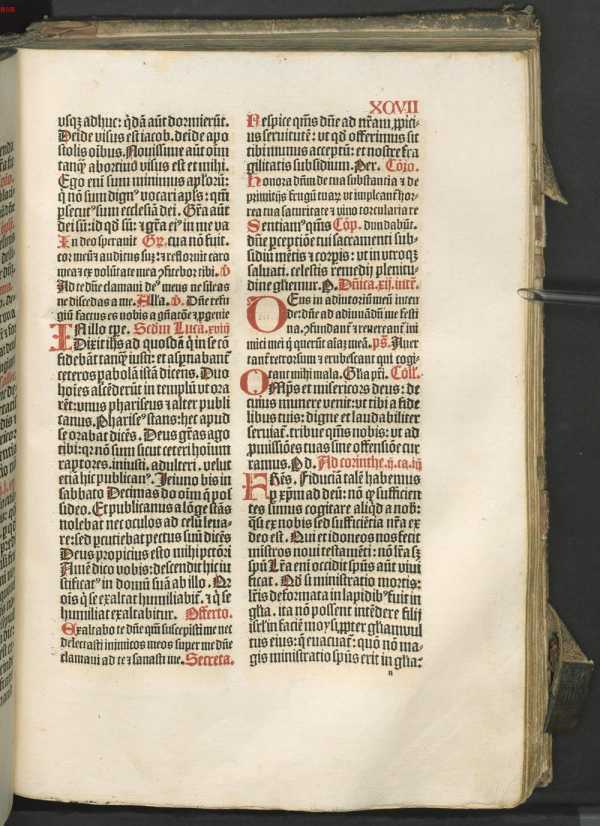 XCVII
vsqȝ adhuc: qͥdā aūt dormierūt.
Deīde visus est iacob. deīde apo
stolis oībus. Nouissime aūt oīm
tanqȝ abortiuo visus est et mihi.
Ego eni sum minimus apl'orū:
q̄ nō sum dign⁹ vocari apl's: qm̄
ꝑsecut⁹ sum ecclesiā dei. Gr̄a aūt
dei sū: id qd sū: ⁊ gr̄a ei⁹ in me va
In deo sperauit Gr̄. cua nō fuit.
cor meū ⁊ adiutus suȝ: ⁊ refloruit caro
mea ⁊ ex volūtate mea ꝯfitebor illi. ℣
Ad te dn̄e clamaui de⁹ meus ne sileas
ne discedas a me. Alla. ℣. Dn̄e refu
giū factus es nobis a gn̄atōe ⁊ ꝓgenie
IN illo tp̄e. Scdm Lucā. xviij
Dixit ih̄s ad quosdā q̄ in se cō
fidebāt tanqȝ iusti: et aspnabant̄
ceteros pabolā istā dicens. Duo
hoīes ascēderūt in templū vt ora
rēt: vnus phariseus ⁊ alter publi
canus. Pharise⁹ stans: hec apud
se orabat dicēs. Deus gr̄as ago
tibi: qr nō sum sicut ceteri hoīum
raptores. iniusti. adulteri. velut
etiā hic publican⁹. Ieiuno bis in
sabbato Decimas do oīm q̄ pos
sideo. Et publicanus a lōge stās
nolebat nec oculos ad celū leua-
re: sed ꝑcutiebat pectus suū dicēs
Deus propicius esto mihi pctōri
Amē dico vobis: descendit hic iu
stificat⁹ in domū suā ab illo. Qr
ois q̄ se exaltat humiliabit̄. ⁊ q̄ se
humiliat exaltabitur. Offerto.
Exaltabo te dn̄e qm̄ suscepisti me nec
delectasti inimicos meos super me dn̄e
clamaui ad te ⁊ sanasti me. Secreta.
Respice qs̄ dn̄e ad nr̄am ꝓpici-
us seruitutē: vt qd offerimus sit
tibi munus acceptū: et nostre fra
gilitatis subsidium. Per. Cōio.
Honora dn̄m de tua substantia ⁊ de
primitijs frugū tuaꝝ vt impleant̄ hor-
rea tua saturitate ⁊ vino torcularia re
Sentiam⁹ qs̄ Cōp. dundabūt.
dn̄e ꝑceptiōe tui sacramenti sub-
sidiū mētis ⁊ corpis: vt in vtroqȝ
saluati. celestis remedij plenitu-
dine gl'iemur. P. Dn̄ica. xij. intr̄.
DEus in adiutoriū meū inten
de: dn̄e ad adiuuādū me festi
na. ꝯfundant̄ ⁊ reuereant̄ ini
mici mei q̄ querūt aīaȝ meā. ps̄. Auer
tant̄ retrorsum ⁊ erubescant qui cogi-
tant mihi mala. Gl'ia pr̄i. Coll̄.
OMp̄s et misericors deus: de
cuius munere venit: vt tibi a fide
libus tuis: digne et laudabiliter
seruiat̄. tribue qs̄ nobis: vt ad
ꝓmissiōes tuas sine offensiōe cur
ramus. P. d. Ad corinthe. ij. ca. iij
FRēs. Fiduciā talē habemus
ꝑ xp̄m ad deū: nō q̄ sufficien
tes simus cogitare aliqd a nob̄:
q̄si ex nobis sed sufficiētia nr̄a ex
deo est. Qui et idoneos nos fecit
mistros noui testamēti: nō lr̄a sȝ
spū Lr̄a eni occidit sp̄us aūt viui
ficat. Qd si ministratio mortis:
lr̄is deformata in lapidib⁹ fuit in
gl'ia. ita nō possent intēdere filij
isrl' in faciē moysi ꝓpter gl'iam vul
tus eius: q̄ euacuat̄: quō nō ma-
gis ministratio sp̄us erit in gl'ia:
n